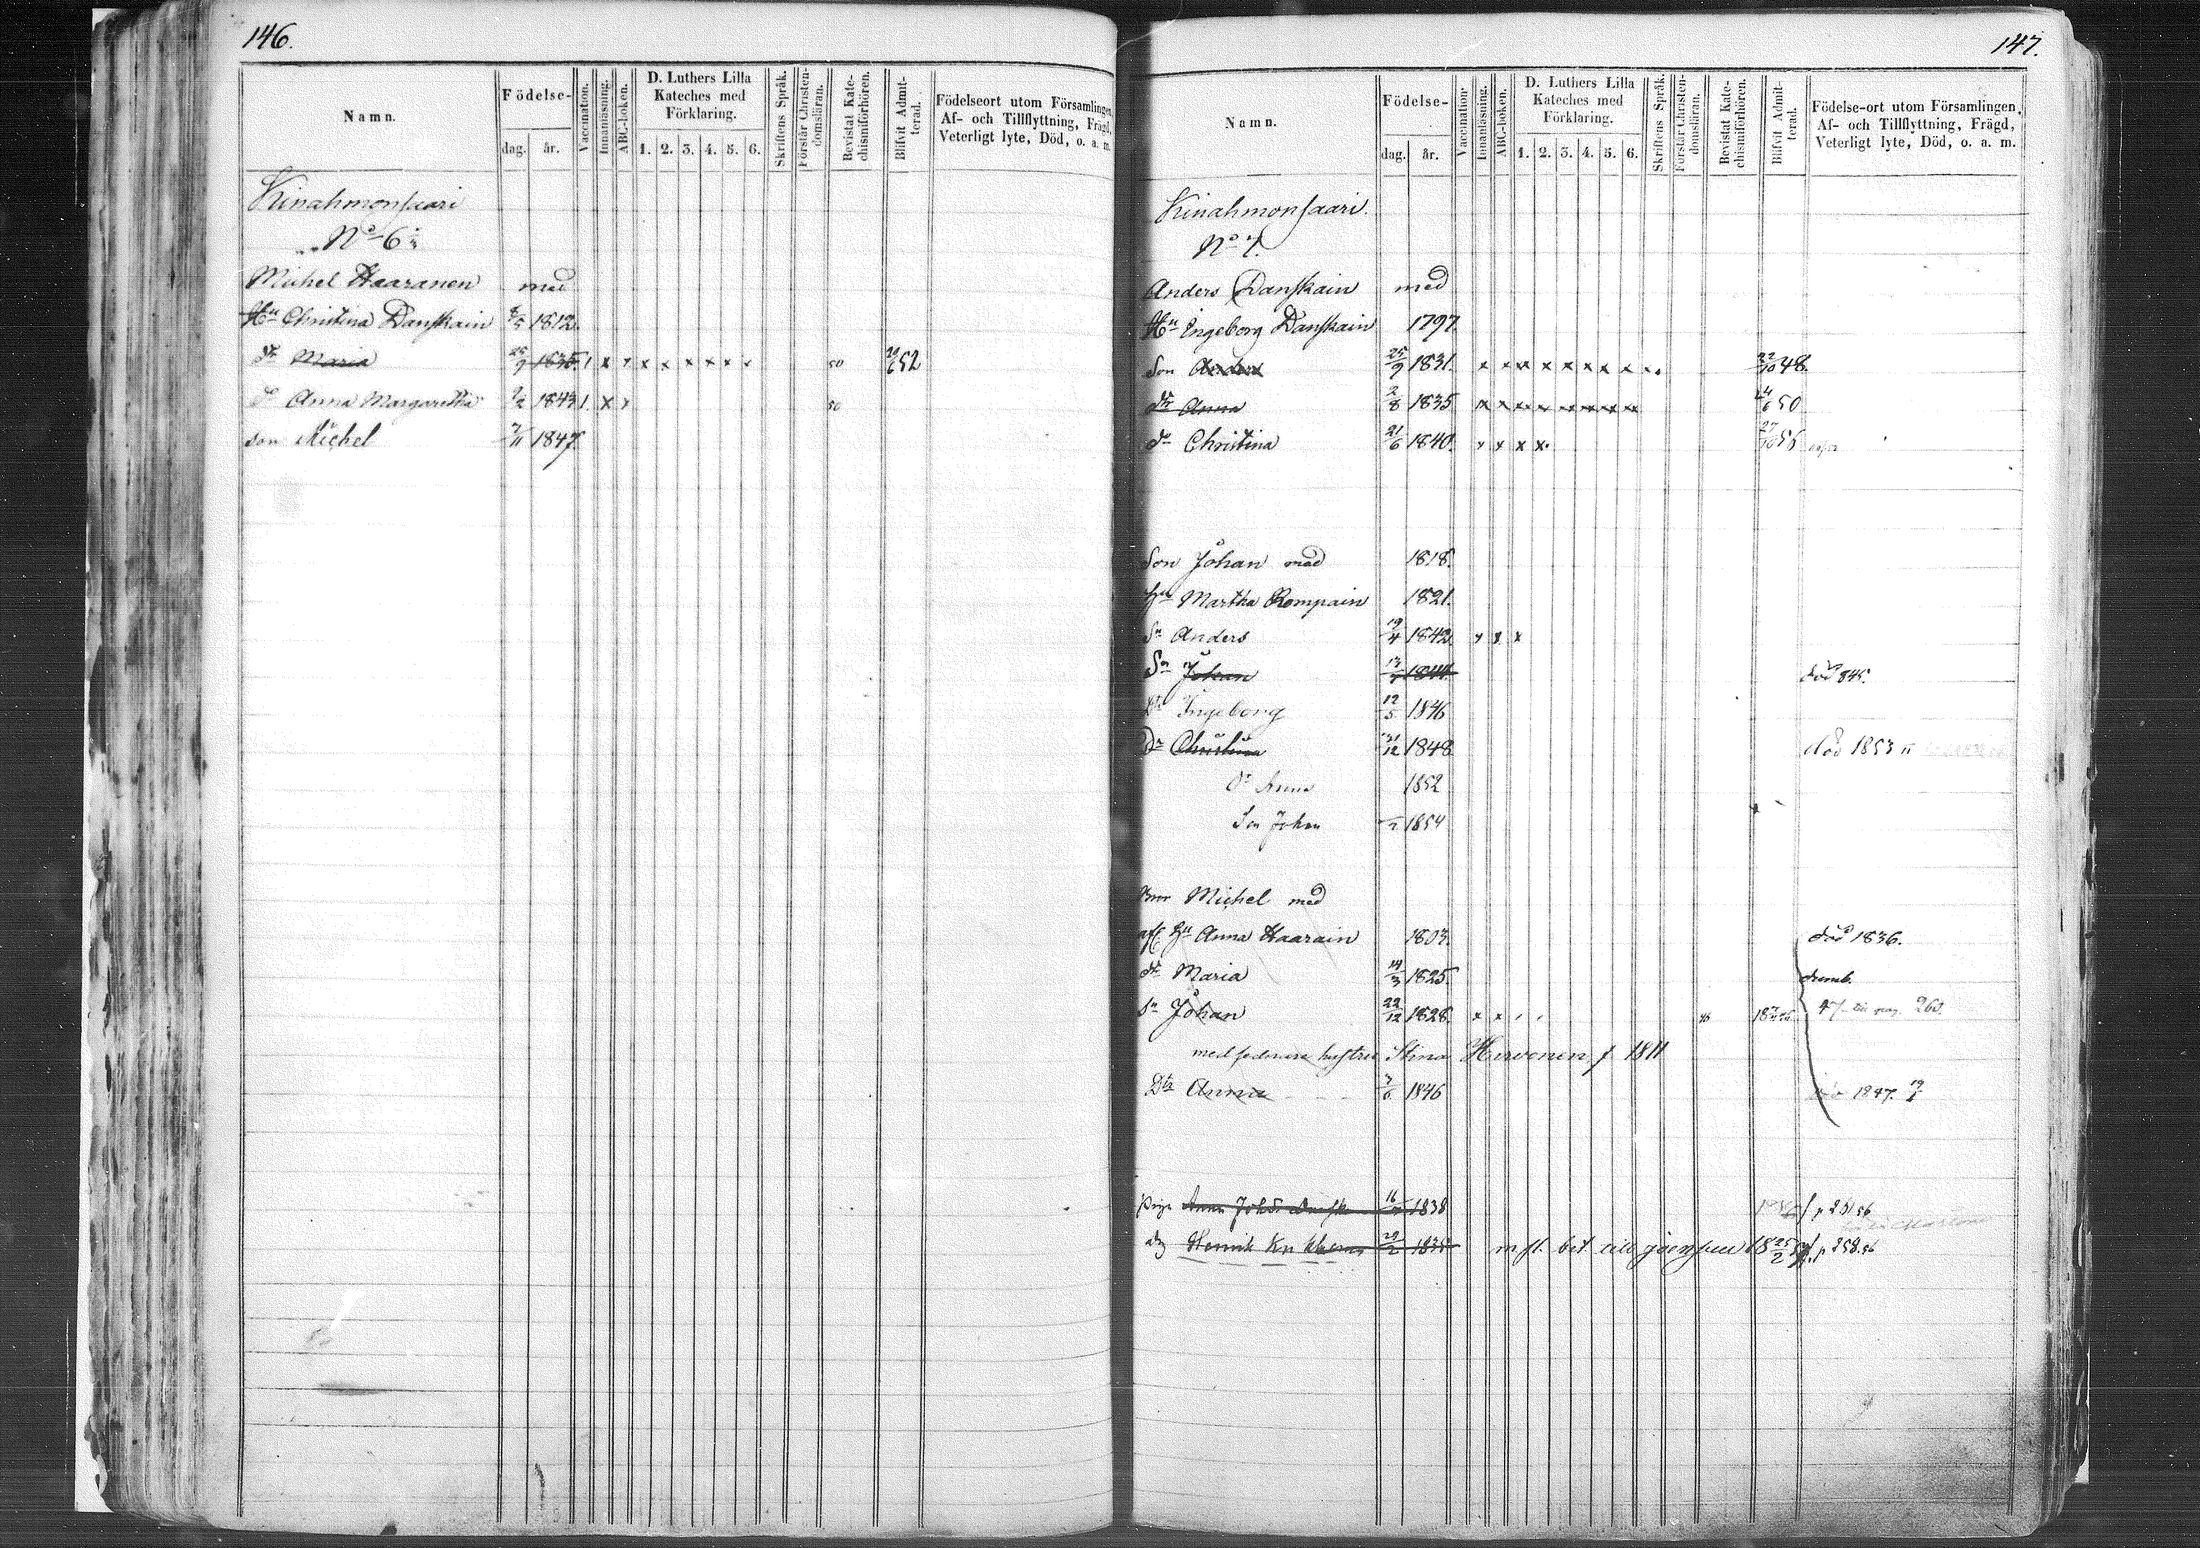 146.
Namn.
Födelse-
dag. år.
Vaccination.
Innanläsning.
ABC-boken.
D. Luthers Lilla
Kateches med
Förklaring.
1. 2. 3. 4. 5. 6.
Skriftens Språk.
Förstår Christen-
domsläran.
Bevistat Kate-
chismiförhören.
Blifvit Admit-
terad.
Födelseort utom Församlingen,
Af- och Tillflyttning, Frägd,
Veterligt lyte, Död, o. a. m.
Kinahmonsaari
No 6
Michel Haaranen med
Hu Christina Danskain 1812.
dr Maria 25/9 1835. 1 x x x x x x x 50 52
dr Anna Margaretha 1843 1. x x 50
son Michel 7/11 1847.
147.
Namn.
Födelse-
dag. år.
Vaccination.
Innanläsning.
ABC-boken.
D. Luthers Lilla
Kateches med
Förklaring.
1. 2. 3. 4. 5. 6.
Skriftens Språk.
Förstår Christen-
domsläran.
Bevistat Kate-
chismiförhören.
Blifvit Admit-
terad.
Födelse-ort utom Församlingen,
Af- och Tillflyttning, Frägd,
Veterligt lyte, Död, o. a. m.
Kinahmonsaari.
No 7.
Anders Danskain med
Hu Ingeborg Danskain 1797
Son Anders 25/9 1831. x x x x x x x x 22/10 48.
dr Anna 2/8 1835 x x x x x x x x 24/6 50
dr Christina 21/6 1840. x x x x 27/10 55
Son Johan med 1818.
Hu Martha Rompain 1821.
Sn Anders 19/4 1842. x x x
Sn Johan 1844. död 845.
dr Ingeborg 12/5 1846
Dr Christina 31/12 1848. död 1853
dr Anna 1852
Son Johan 1854
Bror Michel med
afl Hu Anna Haarain 1803. död 1836.
dr Maria 14/3 1825. dumb.
Sn Johan 22/12 1828. x x 47 till pag. 260.
med sednare hustru Stina Hirvonen f 1811
Dtr Anna 1846 död 1847. 19
Piga Anna 16 1838 p 251 56
Henrik 29/2 1835 till 18 25/2 p 258.56